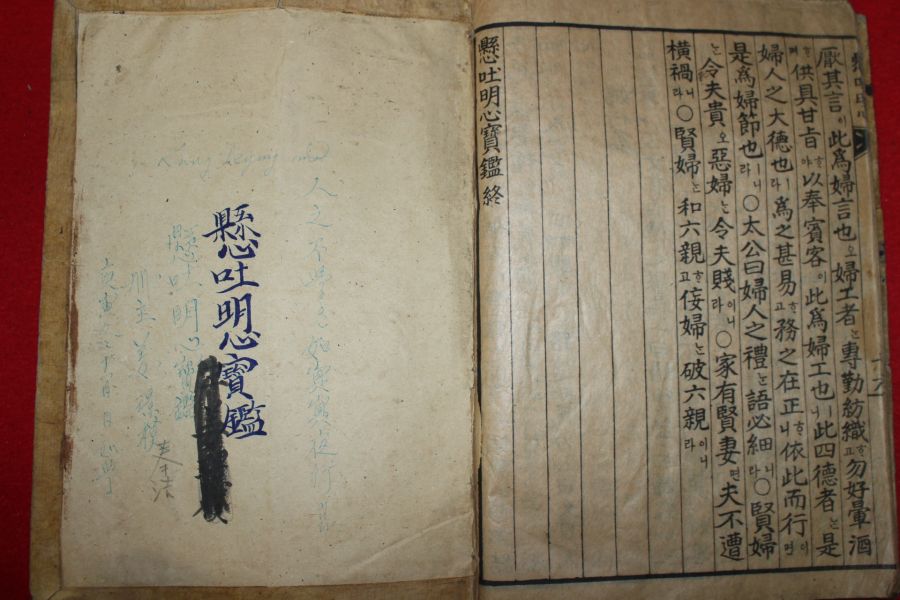 厭其言이此爲婦言也오婦工者는專勤紡織ᄒᆞ고勿好暈酒
ᄒᆞ며供具甘旨ᄒᆞ야以奉賓客이此爲婦工也ㅣ니此四德者는是
婦人之大德也ㅣ라爲之甚易ᄒᆞ고務之在正ᄒᆞ니依此而行이면
是爲婦節也ㅣ니라○太公曰婦人之禮는語必細니라○賢婦
는令夫貴오惡婦는令夫賤이니라○家有賢妻면夫不遭
橫禍니라○賢婦는和六親ᄒᆞ고佞婦는破六親이니라
懸吐明心寶鑑 終
懸吐明心寶鑑
懸吐明心寶鑑